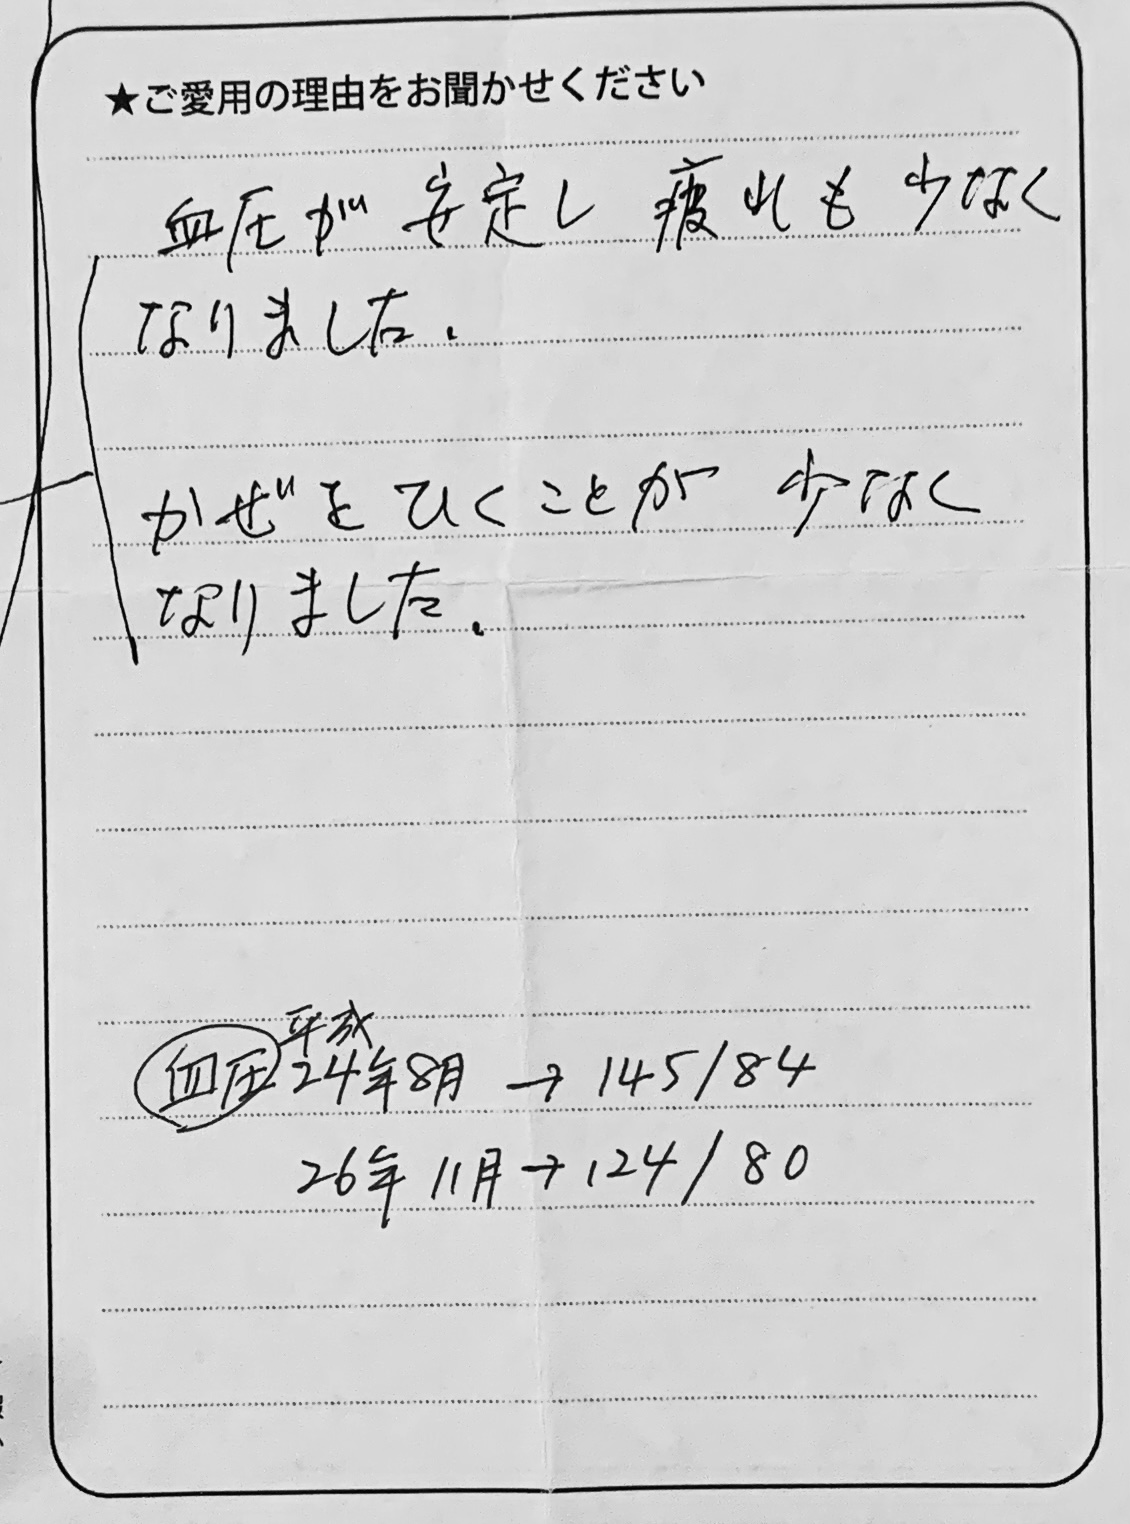 ★ご愛用の理由をお聞かせください
血圧が安定し 疲れも少なく
なりました.
かぜをひくことが 少なく
なりました.
平成
血圧 24年8月 → 145/84
26年11月 → 124/80